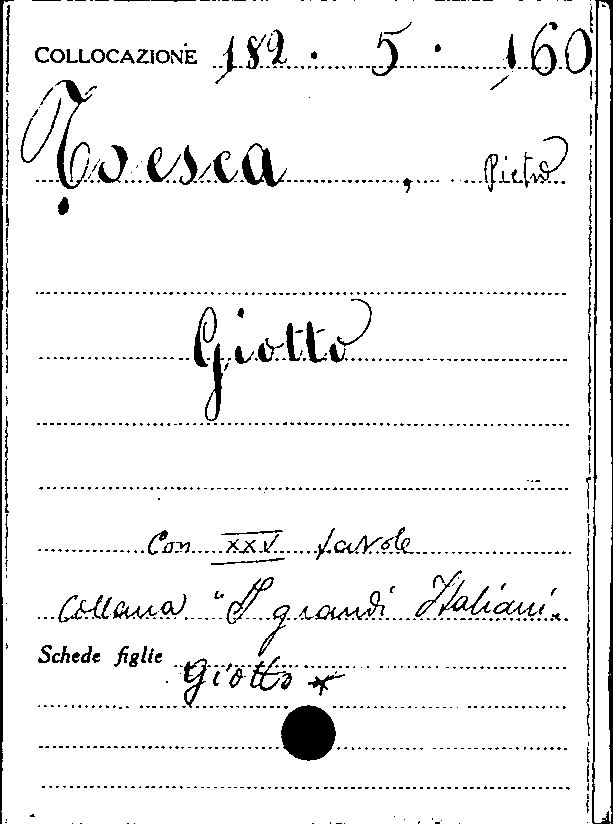 COLLOCAZIONE 182 · 5 · 160
Toesca, Pietro
Giotto
Con XXV tavole
Collana "I grandi Italiani.
Schede figlie Giotto *